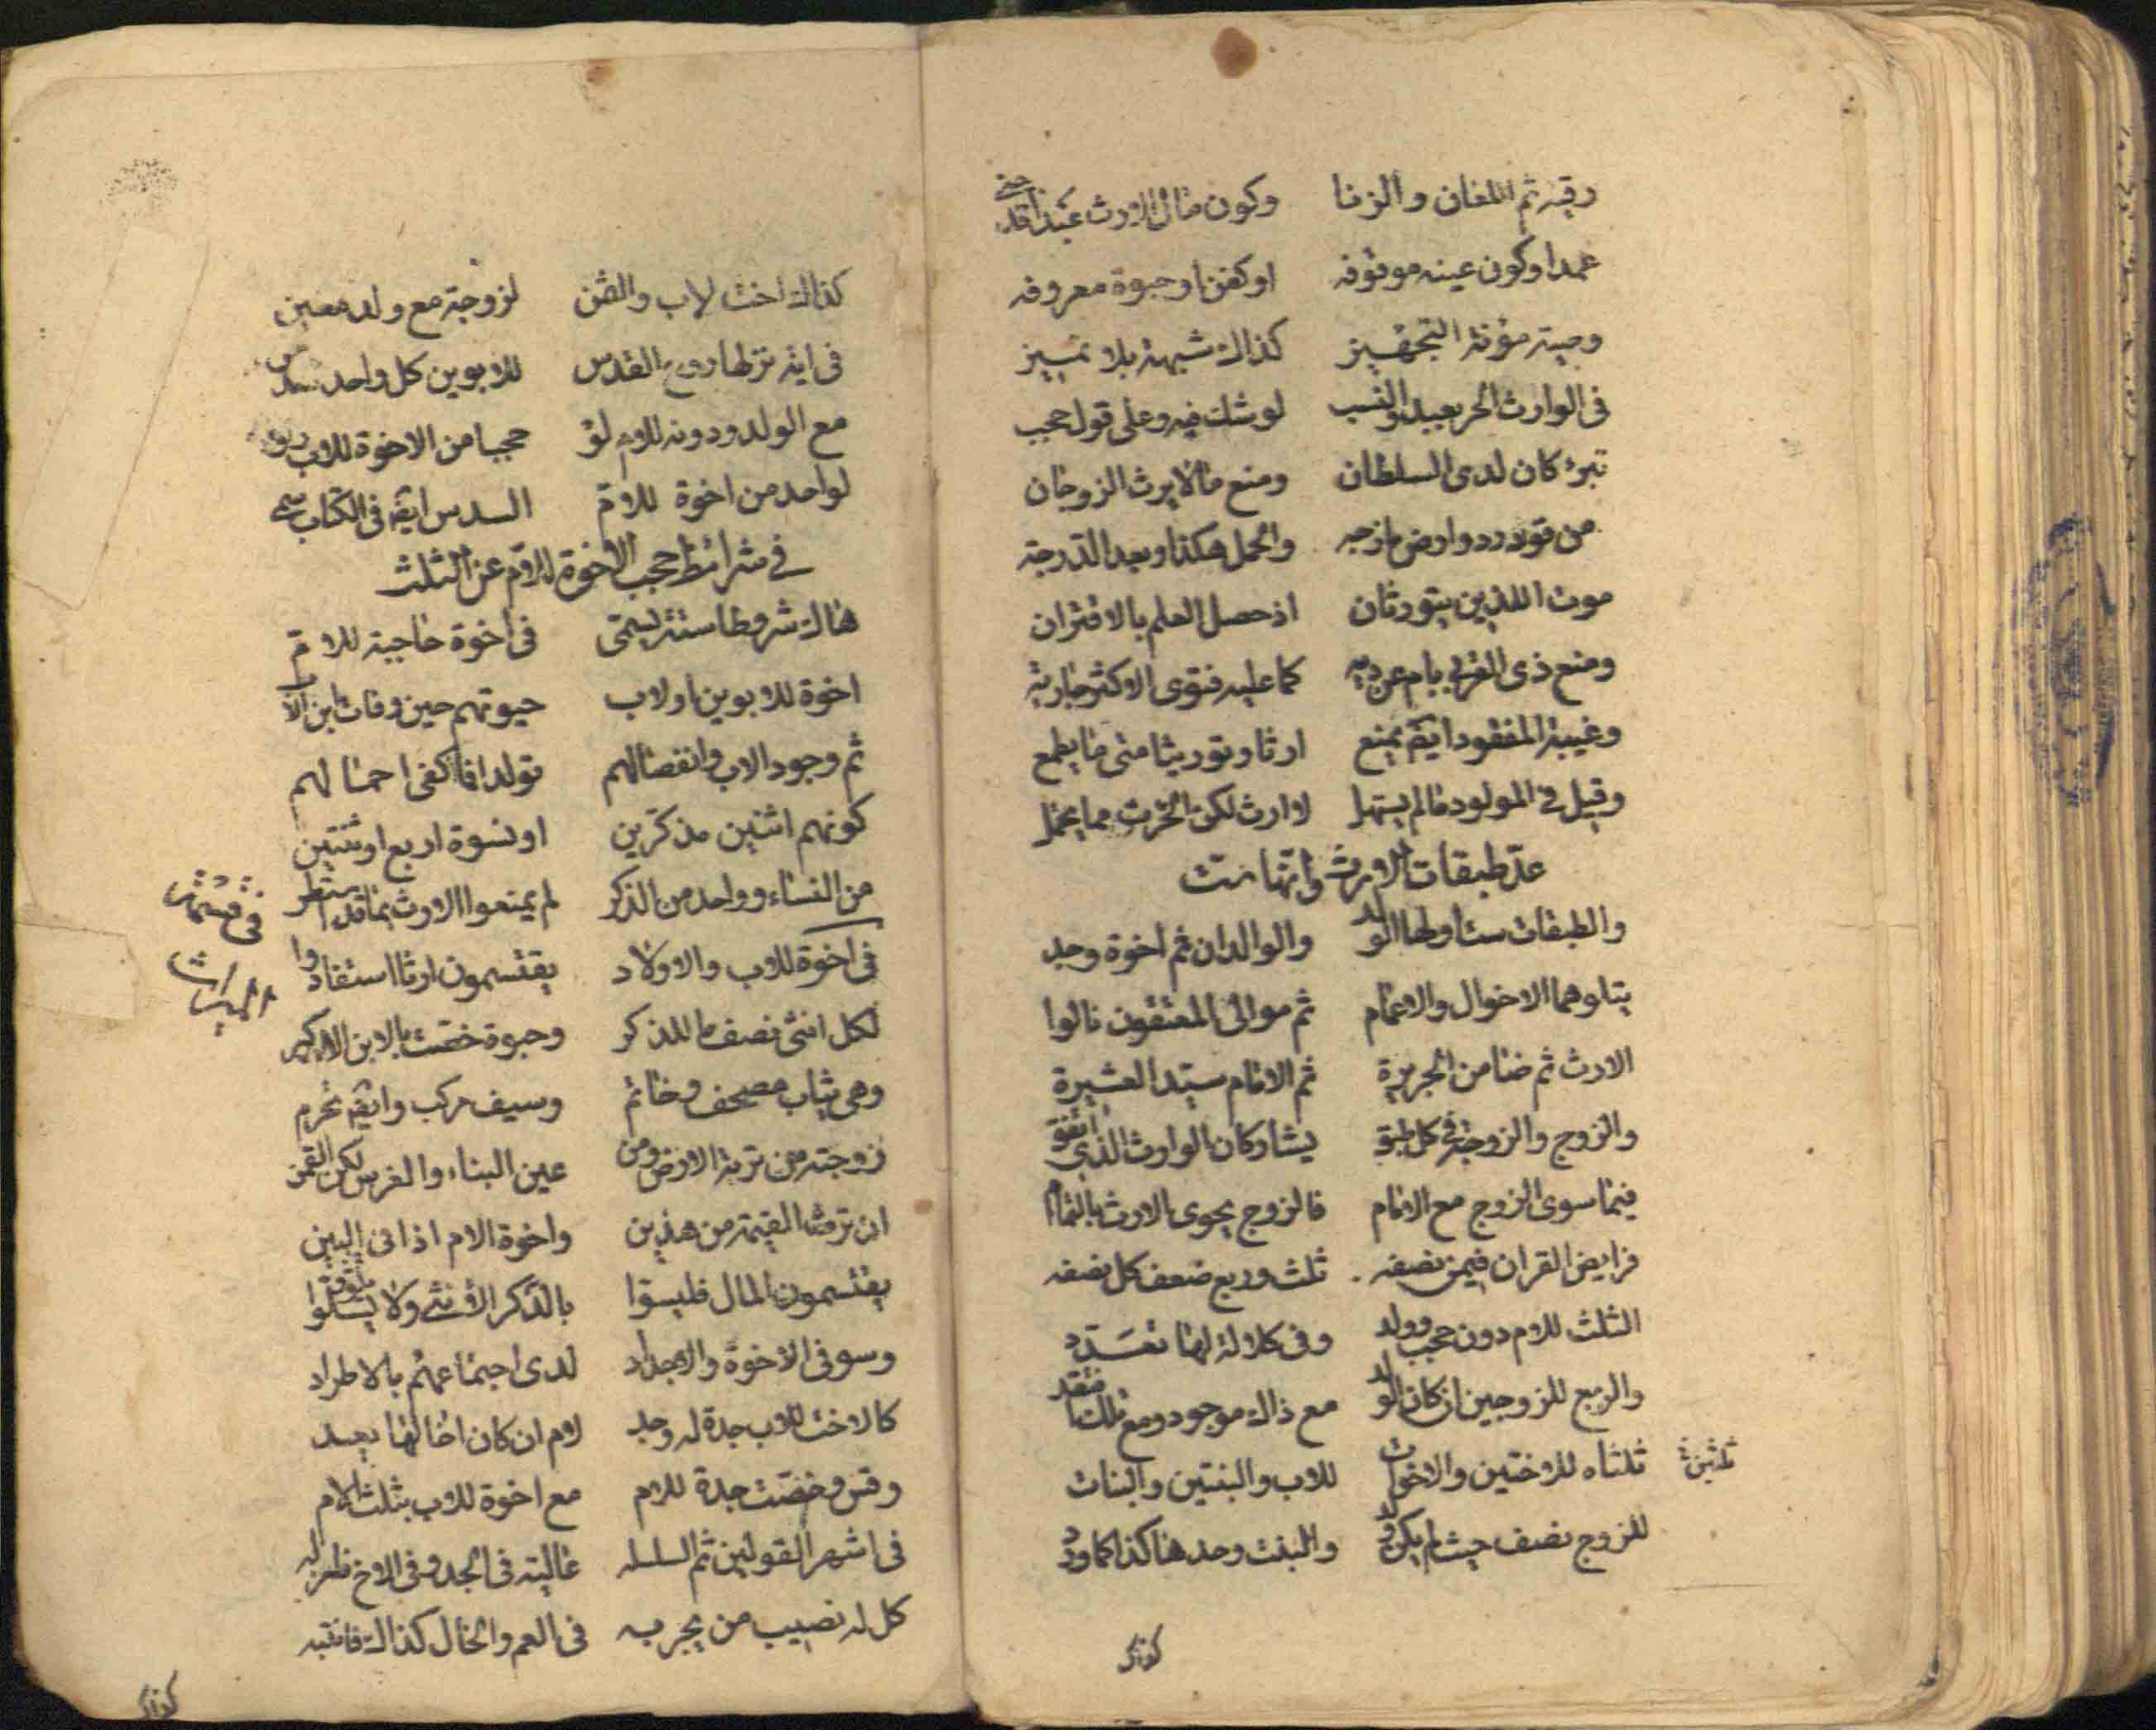 رقية ثم اللعان والزنا وكون مال الارث عبدا قد جنى
عمدا وكون عينه موقوفه او كفنا وحبوة معروفه
وصية مؤنة التجهيز كذاك شبهة بلا تمييز
فى الوارث الحر بعيد والنسب لو شك فيه وعلى قول حجب
تبرئ كان لدى السلطان ومنع ما لا يرث الزوجان
من قود ردوا وارض مازجه والحمل هكذا وبعد الدرجة
موت اللذين يتورثان اذ حصل العلم بالاقتران
ومنع ذى القربى بام عن ديه كما عليه فتوى الاكثر جارية
وغيبة المفقود ايضا يمنع ارثا وتوريثا متى ما يطمع
وقيل فى المولود ما لم يستهل لا ارث لكن الحرث مما يحتمل
عد طبقات الارث وانها ست
والطبقات ست اولها الولد والوالدان ثم اخوة وجد
يتلوهما الاخوال والاعمام ثم موالى المعتقون نالوا
الارث ثم ضامن الجريرة ثم الامام سيد العشيرة
والزوج والزوجة فى كل طبق يشاركان الوارث الذى اتفق
فيما سوى الزوج مع الامام فالزوج يحوى الارث بالتمام
فرايض القران فيمن نصفه ثلث وربع ضعف كل نصفه
الثلث للام دون حجب وولد وفى كلالة لها تعدد
والربع للزوجين ان كان الولد مع ذاك موجود ومع تلك فقد
ثلثاه للاختين والاخوات للاب والبنتين والبنات
ثلثين
للزوج نصف حيث لم يكن ولد والبنت وحدها كذا كما ورد
كذاك
كذاك اخت لاب والثمن لزوجة مع ولد معين
فى اية نزلها روح القدس للابوين كل واحد سدس
مع الولد ودونه للام لو حجبا من الاخوة للاب
لواحد من اخوة للام السدس ايضا فى الكتاب سمى
فى شرائط حجب الاخوة للام عن الثلث
هاك شروطا ستة يسمى فى اخوة حاجبة للام
اخوة للابوين او لاب حيوتهم حين وفات ابن الاب
ثم وجود الاب وانفصالهم تولدا فما كفى احمالهم
كونهم اثنين مذكرين او نسوة اربع او ثنتين
من النساء وواحد من الذكر لم يمنعوا الارث بما قد استطر
فى قسمة الميراث
فى اخوة للاب والاولاد يقتسمون ارثا استفادوا
لكل انثى نصف ما للذكر وحبوة خصت بالابن الاكبر
وهى ثياب مصحف وخاتم وسيف مركب وايضا تحرم
زوجته من تربة الارض ومن عين البناء والغرس لكن القمن
ان ترث القيمة من هذين واخوة الام اذا فى البين
يقتسمون المال فليسووا بالذكر الانثى ولا
وسو فى الاخوة والاجداد لدى اجتماعهم بالاطراد
كالاخت للاب جدة له وجد لام ان كان اخا لها يعد
وقس وخصت جدة للام مع اخوة للاب بثلث لام
فى اشهر القولين ثم السلسله عالية فى الجد وفى الاخ
كل له نصيب من يجر به فى العم والخال كذاك فانتبه
كذاك